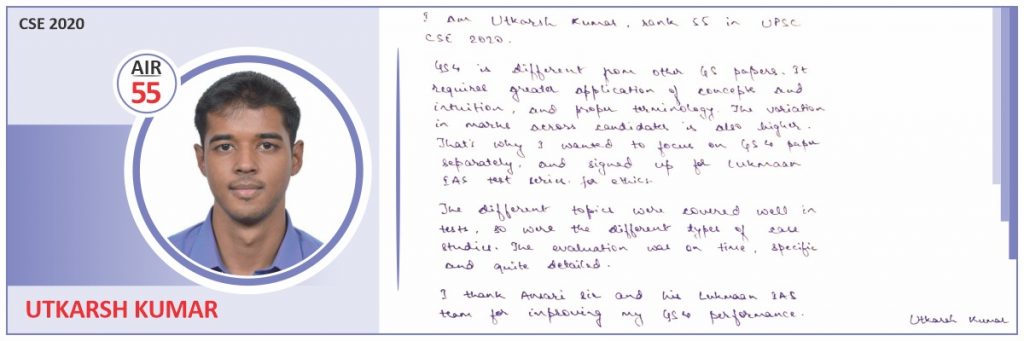 CSE 2020
AIR
55
UTKARSH KUMAR
I am Utkarsh Kumar, rank 55 in UPSC
CSE 2020.
GS4 is different from other GS papers. It
requires greater application of concepts and
intuition, and proper terminology. The variation
in marks across candidates is also higher.
That's why I wanted to focus on GS4 paper
separately, and signed up for Lukmaan
IAS test series for ethics.
The different topics were covered well in
tests, so were the different types of case
studies. The evaluation was on time, specific
and quite detailed.
I thank Ansari Sir and his Lukmaan IAS
team for improving my GS4 performance.
Utkarsh Kumar